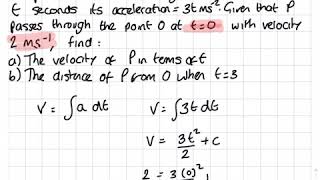 t seconds its acceleration = 3t ms⁻². Given that P
passes through the point O at t=0 with velocity
2 ms⁻¹, find:
a) The velocity of P in terms of t
b) The distance of P from O when t=3
V = ∫a dt
V = ∫3t dt
V = 3t²/2 + C
2 = 3(0)²